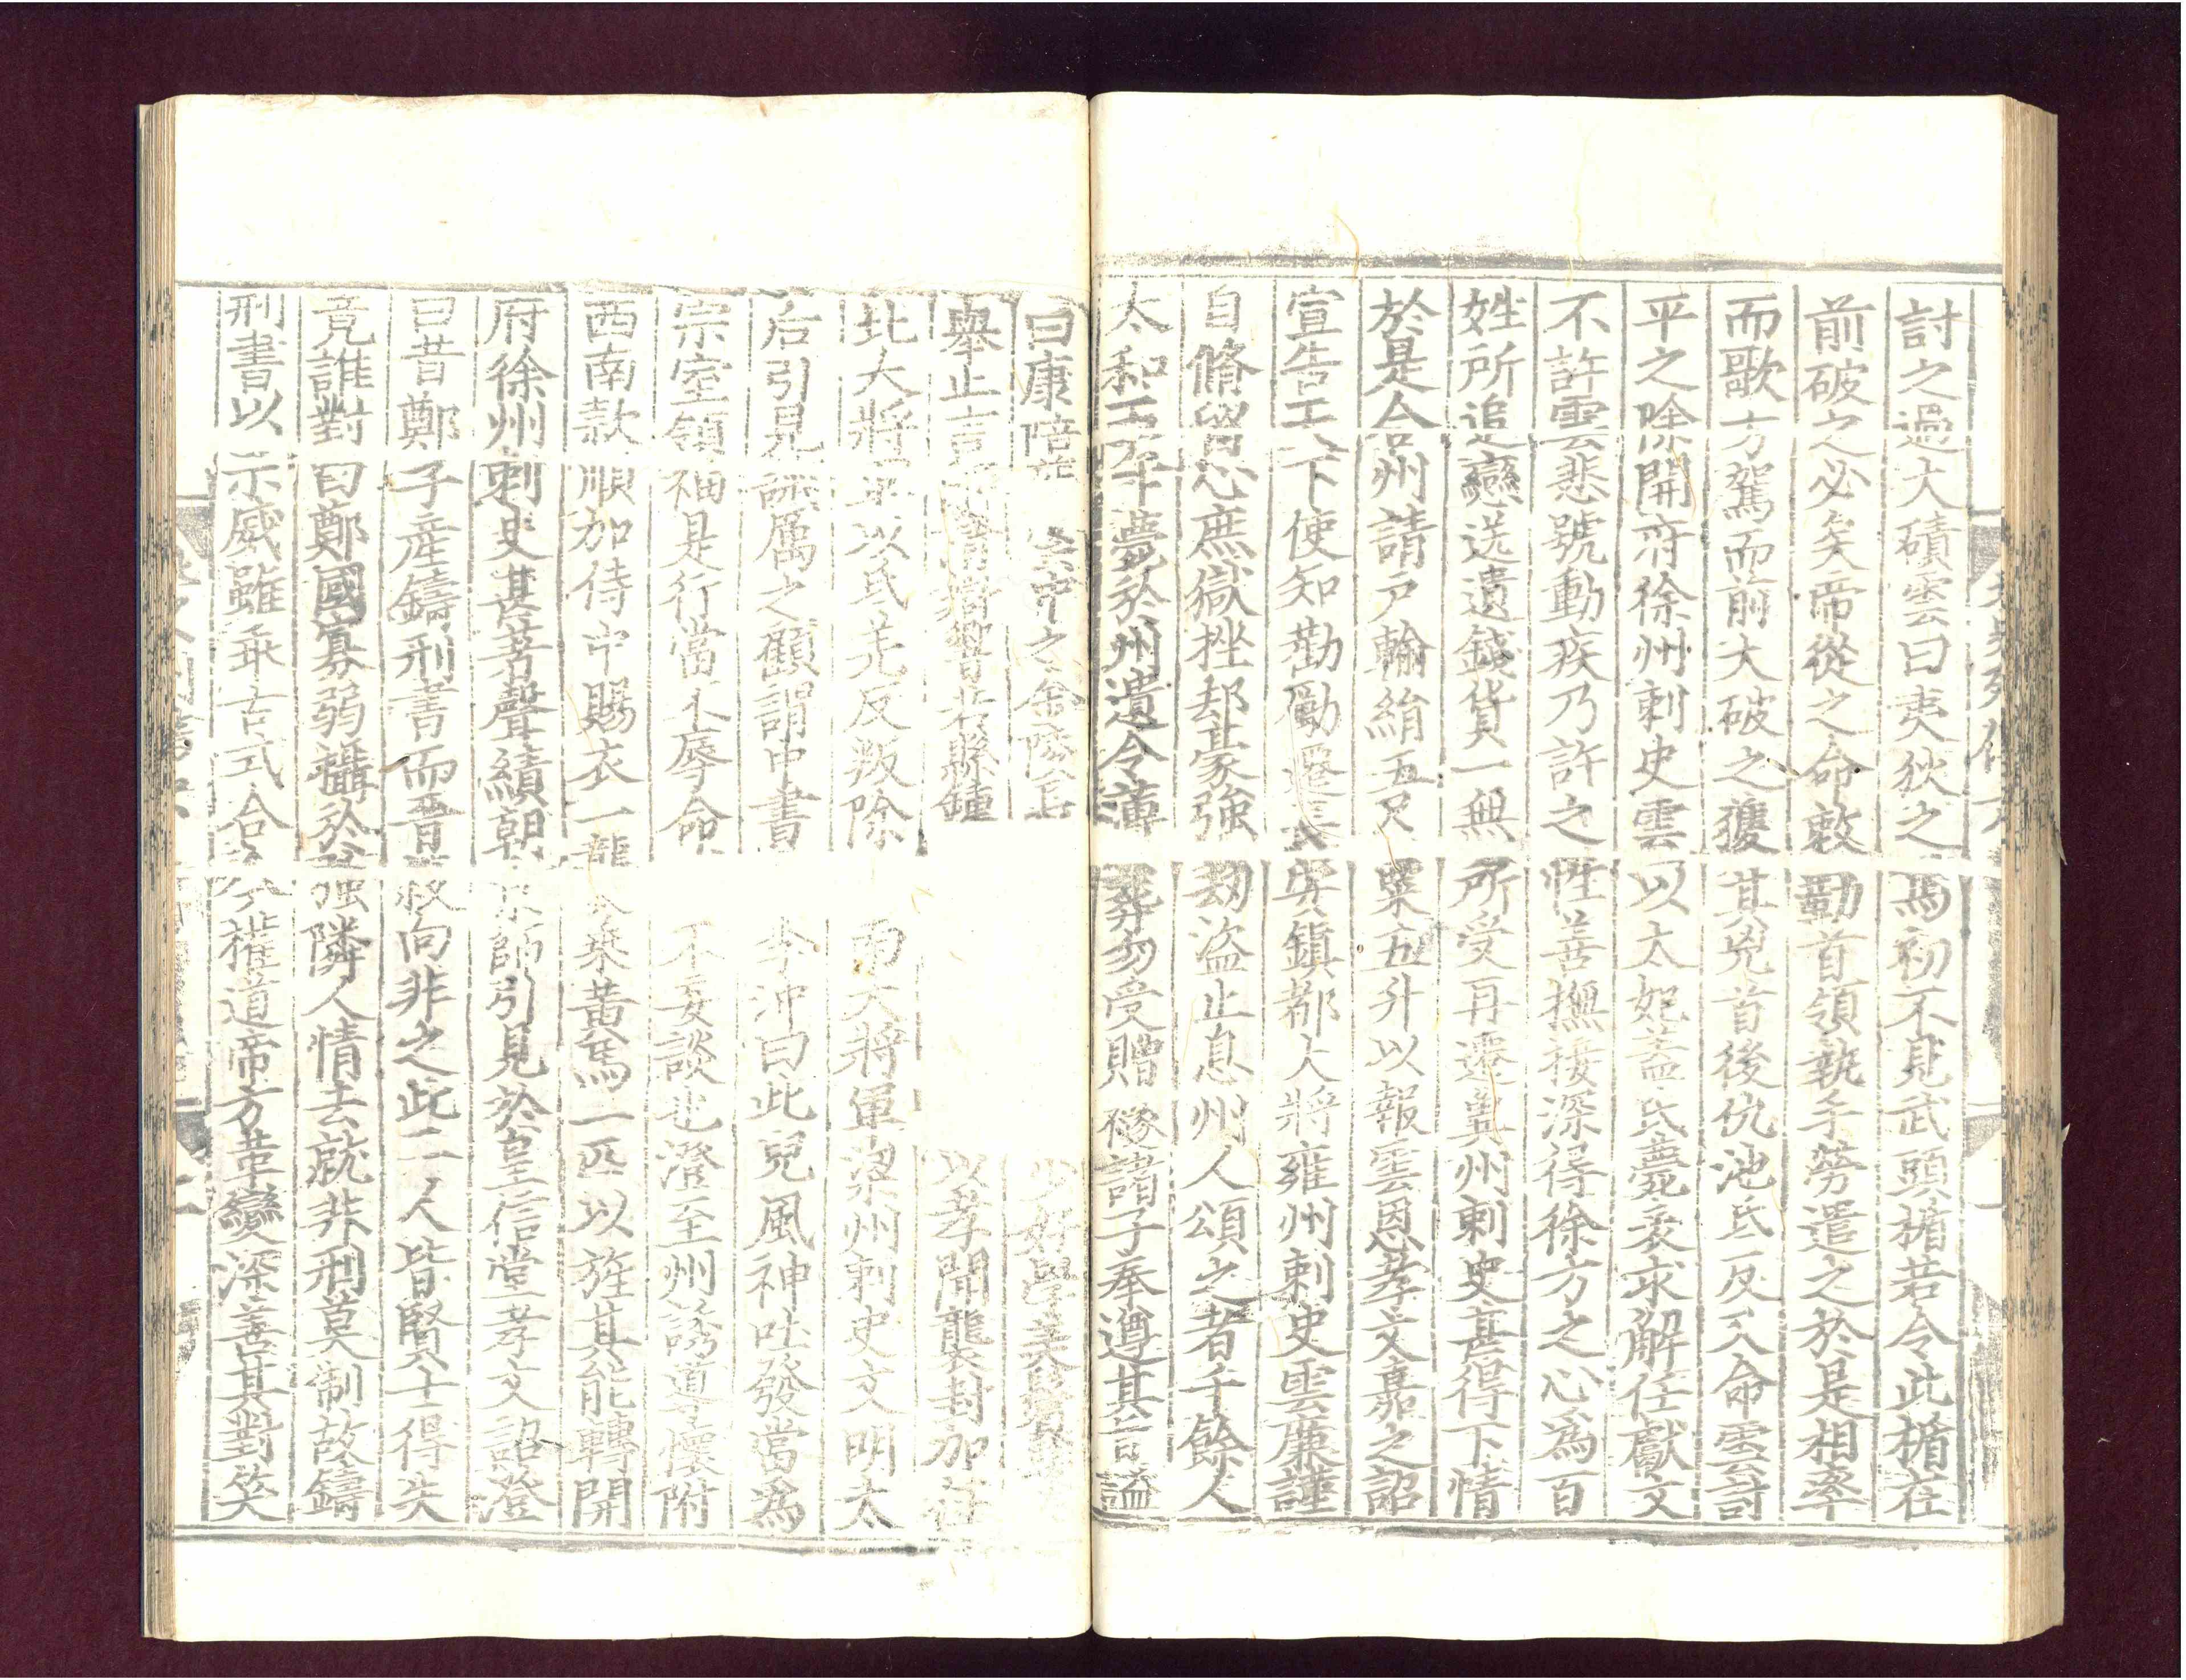 討之過大磧雲曰夷狄之馬初不見武頭楯若令此楯在
前破之必矣帝從之命敕勤首領執手勞遣之於是相率
而歌方駕而前大破之獲其兇首後仇池氐反又命雲討
平之除開府徐州刺史雲以太妃蓋氏薨表求解任獻文
不許雲悲號動疾乃許之性善撫接深得徐方之心為百
姓所追戀送遺錢貨一無所受再遷兾州刺史甚得下情
於是合州請戶輸絹五尺粟五升以報雲恩孝文嘉之詔
宣告天下使知勸勵遷長安鎮都大將雍州刺史雲廉謹
自脩留心庶獄挫却豪強劫盜止息州人頌之者千餘人
太和五年薨於州遺令薄葬勿受贈襚諸子奉遵其旨謚
曰康陪 雲中之金陵 少好學美鬚髮
舉止言 清 響若縣鍾 以孝聞襲封加
北大將軍以氐羌反叛除 南大將軍梁州刺史文明太
后引見誡厲之顧謂中書 李沖曰此兒風神吐發當為
宗室領袖是行當不辱命 不妄談也澄至州誘道懷附
西南款順加侍中賜衣一襲 乘黃馬一匹以旌其能轉開
府徐州刺史甚著聲績朝京師引見於皇信堂孝文詔澄
曰昔鄭子產鑄刑書而晉 叔向非之此二人皆賢士得失
竟誰對曰鄭國寡弱攝於 強隣人情去就非刑莫制故鑄
刑書以示威雖乖古式合 今權道帝方革變深善其對笑